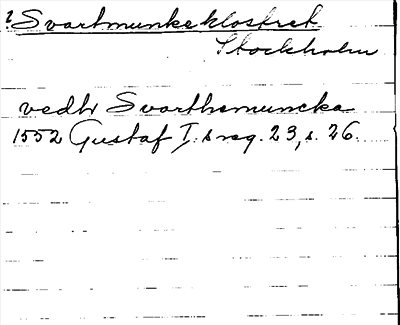 2 Svartmunkeklostret
Stockholm
vedh Svarthemuncka
1552 Gustaf I:s reg. 23, s. 26.